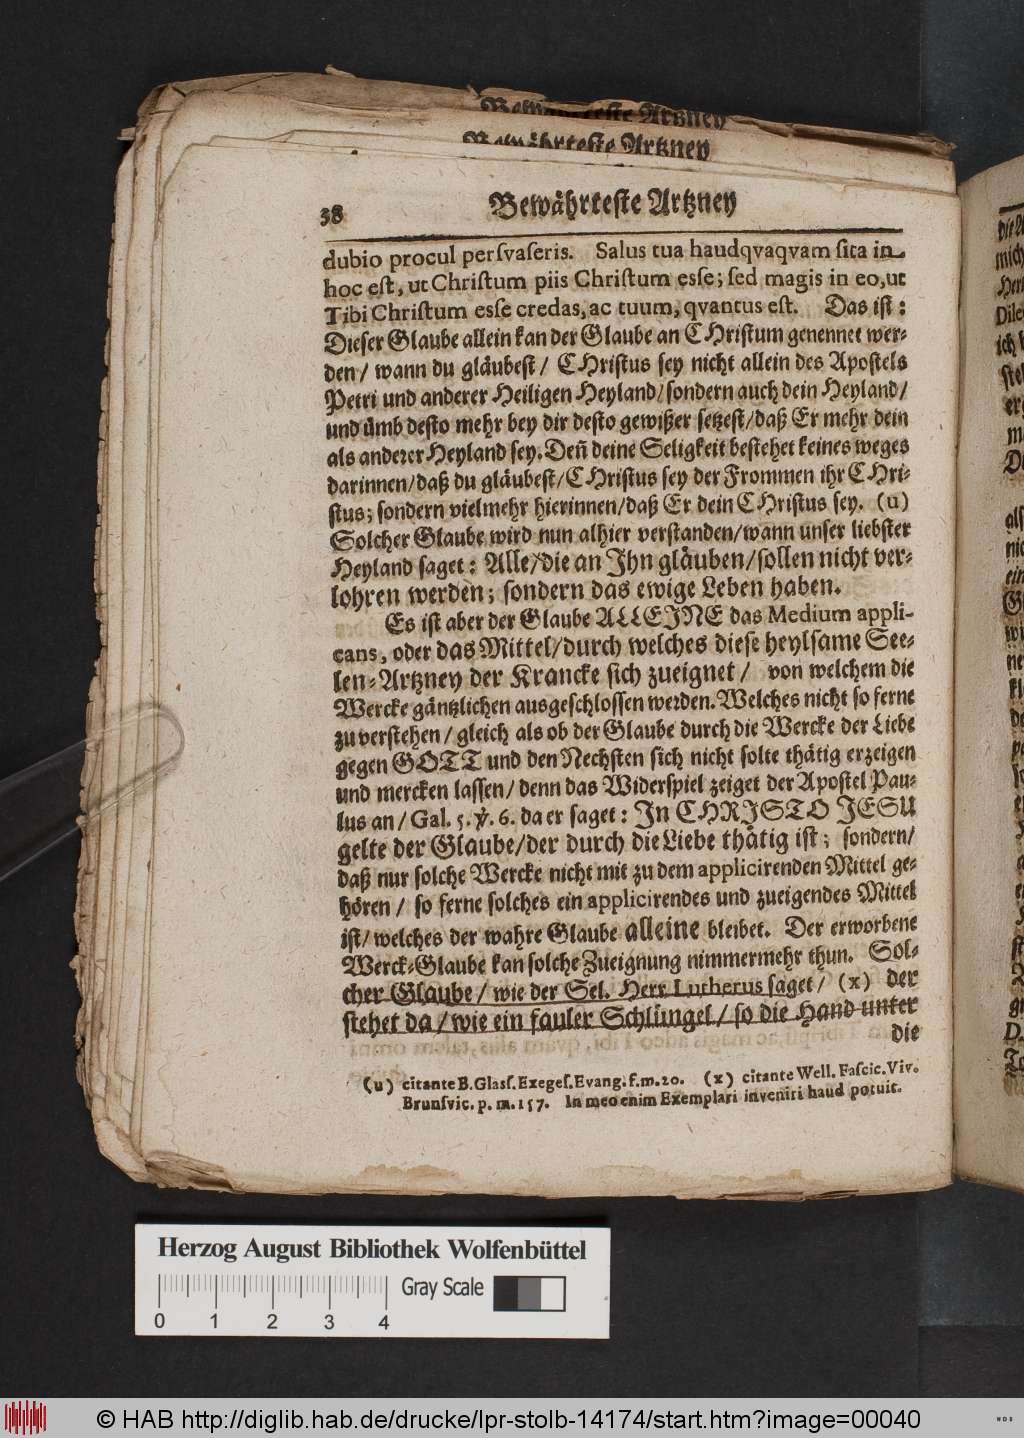 Bewährteste Artzney
Bewährteste Artzney
38 Bewährteste Artzney
dubio procul persvaseris. Salus tua haudqvaqvam sita in
hoc est, ut Christum piis Christum esse; sed magis in eo, ut
Tibi Christum esse credas, ac tuum, qvantus est. Das ist:
Dieser Glaube allein kan der Glaube an CHristum genennet wer-
den/ wann du gläubest/ CHristus sey nicht allein des Apostels
Petri und anderer Heiligen Heyland/ sondern auch dein Heyland/
und ümb desto mehr bey dir desto gewißer setzest/ daß Er mehr dein
als anderer Heyland sey. Deñ deine Seligkeit bestehet keines weges
darinnen/ daß du gläubest/ CHristus sey der Frommen ihr CHri-
stus; sondern vielmehr hierinnen/ daß Er dein CHristus sey. (u)
Solcher Glaube wird nun alhier verstanden/ wann unser liebster
Heyland saget: Alle/ die an Jhn gläuben/ sollen nicht ver-
lohren werden; sondern das ewige Leben haben.
Es ist aber der Glaube ALLEJNE das Medium appli-
cans, oder das Mittel/ durch welches diese heylsame See-
len-Artzney der Krancke sich zueignet/ von welchem die
Wercke gäntzlichen ausgeschlossen werden. Welches nicht so ferne
zu verstehen/ gleich als ob der Glaube durch die Wercke der Liebe
gegen GOTT und den Nechsten sich nicht solte thätig erzeigen
und mercken lassen/ denn das Widerspiel zeiget der Apostel Pau-
lus an/ Gal. 5. ℣. 6. da er saget: Jn CHRJSTO JESU
gelte der Glaube/ der durch die Liebe thätig ist; sondern/
daß nur solche Wercke nicht mit zu dem applicirenden Mittel ge-
hören/ so ferne solches ein applicirendes und zueigendes Mittel
ist/ welches der wahre Glaube alleine bleibet. Der erworbene
Werck-Glaube kan solche Zueignung nimmermehr thun. Sol-
cher Glaube/ wie der Sel. Herr Lutherus saget/ (x) der
stehet da/ wie ein fauler Schlüngel/ so die Hand unter
die
(u) citante B. Glass. Exeges. Evang. f. m. 20. (x) citante Well. Fascic. Viv.
Brunsvic. p. m. 157. In meo enim Exemplari inveniri haud potuit.
Herzog August Bibliothek Wolfenbüttel
Gray Scale
0 1 2 3 4
© HAB http://diglib.hab.de/drucke/lpr-stolb-14174/start.htm?image=00040